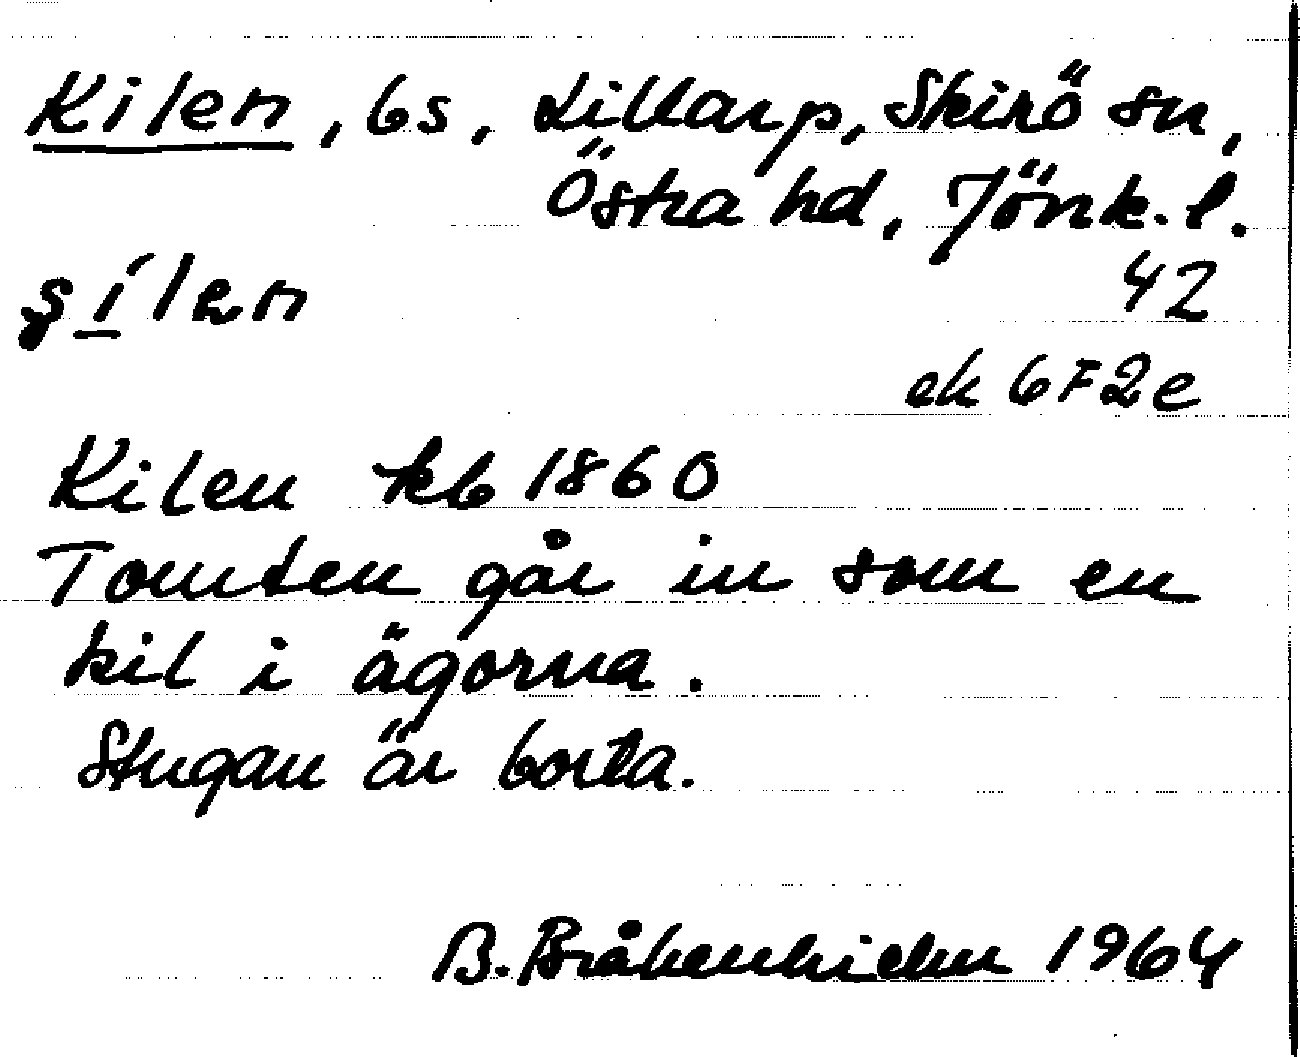 Kilen, bs, Lillarp, Skirö sn,
Östra hd, Jönk. l.
42
ek 6F2e
Kilen kb 1860
Tomten går in som en
kil i ägorna.
Stugan är borta.
B. 1964